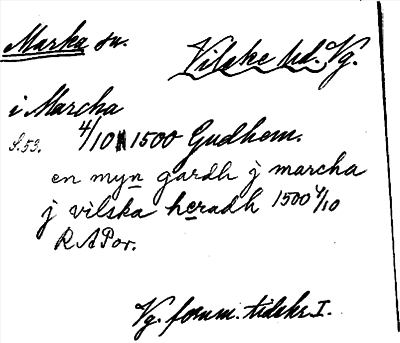 Marka sn. Vilske hd. Vg.
i Marcha
4/10 1500 Gudhem.
S. 53.
en myn gardh j marcha
j vilska heradh 1500 4/10
RAPor.
Vg. fornm. tidskr. I.